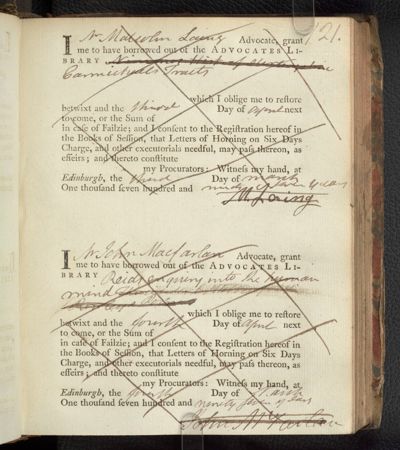 121.
I Mr Malcolm Laing Advocate, grant
me to have borrowed out of the ADVOCATES LI-
BRARY
Carmichaells Tracts
which I oblige me to restore
betwixt and the third Day of April next
to come, or the Sum of
in case of Failzie; and I consent to the Registration hereof in
the Books of Session, that Letters of Horning on Six Days
Charge, and other executorials needful, may pass thereon, as
effeirs; and thereto constitute
my Procurators: Witness my hand, at
Edinburgh, the third Day of March
One thousand seven hundred and ninety seven years
M Laing
I Mr John Macfarlan Advocate, grant
me to have borrowed out of the ADVOCATES LI-
BRARY Reids Enquiry into the human
mind
which I oblige me to restore
betwixt and the fourth Day of April next
to come, or the Sum of
in case of Failzie; and I consent to the Registration hereof in
the Books of Session, that Letters of Horning on Six Days
Charge, and other executorials needful, may pass thereon, as
effeirs; and thereto constitute
my Procurators: Witness my hand, at
Edinburgh, the fourth Day of March
One thousand seven hundred and ninety seven years
John McFarlan